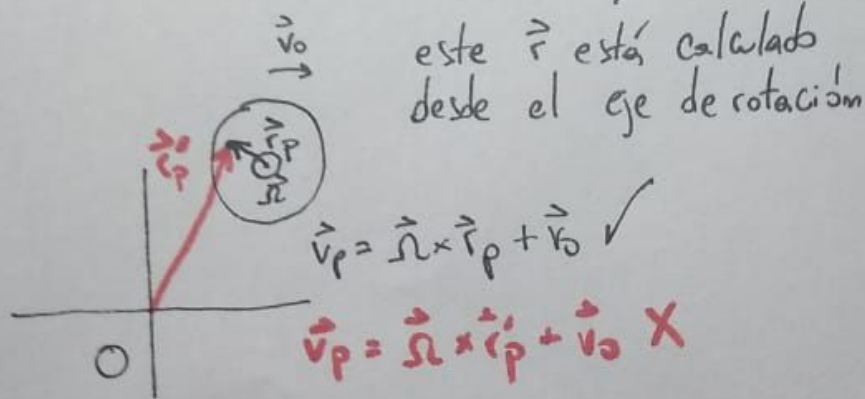 v⃗₀
este r⃗ está calculado
desde el eje de rotación
r⃗'ₚ
r⃗ₚ
Ω⃗
v⃗ₚ = Ω⃗ × r⃗ₚ + v⃗₀ ✓
v⃗ₚ = Ω⃗ × r⃗'ₚ + v⃗₀ X
O